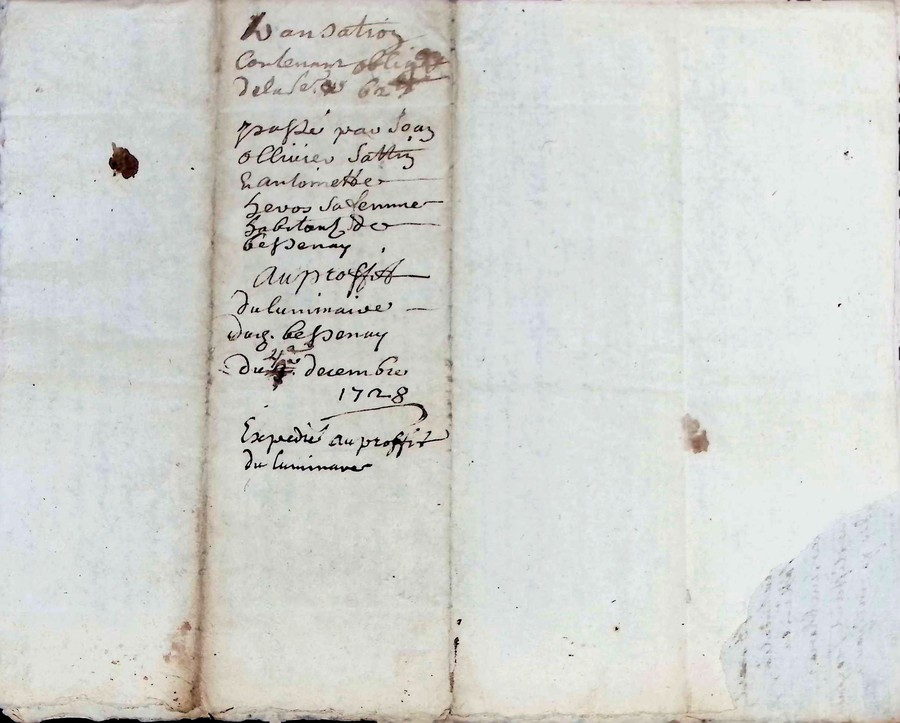 Transation
Contenant oblig.on
de la so.e de 62
passé par Jean
ollivier Sattin
& antoinette
Gevos sa femme
habitants de
bessenay
Au proffit
du luminaire
dud. bessenay
du 4 decembre
1728
Expedié au proffit
du luminaire